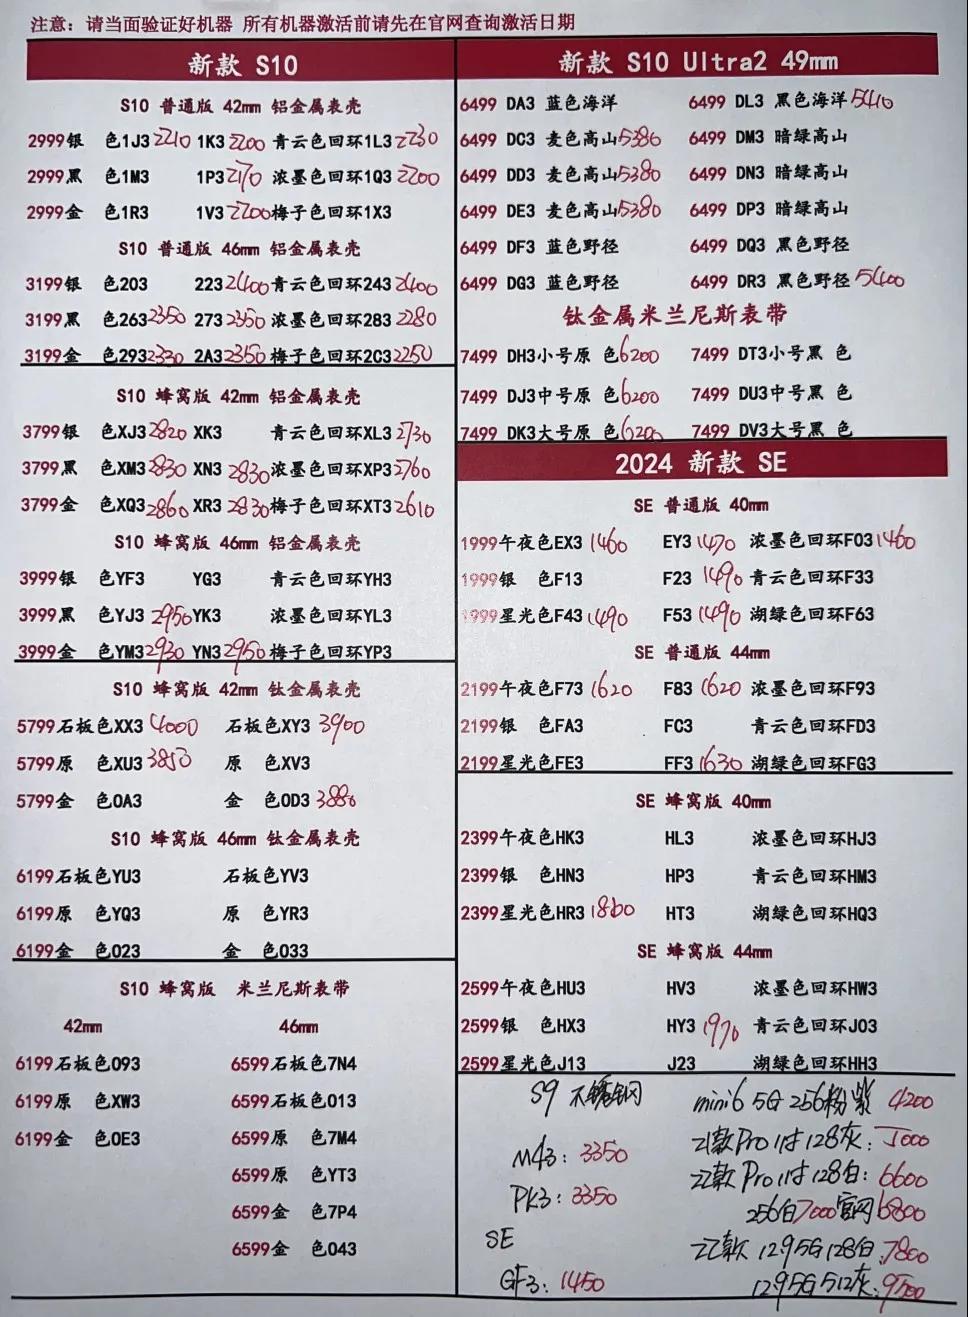 注意: 请当面验证好机器 所有机器激活前请先在官网查询激活日期
新款 S10
S10 普通版 42mm 铝金属表壳
2999银 色1J3 2210 1K3 2200 青云色回环1L3 2230
2999黑 色1M3 1P3 2170 浓墨色回环1Q3 2200
2999金 色1R3 1V3 2200 梅子色回环1X3
S10 普通版 46mm 铝金属表壳
3199银 色203 223 2400 青云色回环243 2400
3199黑 色263 2350 273 2350 浓墨色回环283 2280
3199金 色293 2330 2A3 2350 梅子色回环2C3 2250
S10 蜂窝版 42mm 铝金属表壳
3799银 色XJ3 2820 XK3 青云色回环XL3 2730
3799黑 色XM3 2830 XN3 2830 浓墨色回环XP3 2760
3799金 色XQ3 2860 XR3 2830 梅子色回环XT3 2610
S10 蜂窝版 46mm 铝金属表壳
3999银 色YF3 YG3 青云色回环YH3
3999黑 色YJ3 2950 YK3 浓墨色回环YL3
3999金 色YM3 2930 YN3 2950 梅子色回环YP3
S10 蜂窝版 42mm 钛金属表壳
5799石板色XX3 4000 石板色XY3 3900
5799原 色XU3 3850 原 色XV3
5799金 色0A3 金 色0D3 3880
S10 蜂窝版 46mm 钛金属表壳
6199石板色YU3 石板色YV3
6199原 色YQ3 原 色YR3
6199金 色023 金 色033
S10 蜂窝版 米兰尼斯表带
42mm 46mm
6199石板色093 6599石板色7N4
6199原 色XW3 6599石板色013
6199金 色0E3 6599原 色7M4
6599原 色YT3
6599金 色7P4
6599金 色043
新款 S10 Ultra2 49mm
6499 DA3 蓝色海洋 6499 DL3 黑色海洋 5410
6499 DC3 麦色高山 5380 6499 DM3 暗绿高山
6499 DD3 麦色高山 5380 6499 DN3 暗绿高山
6499 DE3 麦色高山 5380 6499 DP3 暗绿高山
6499 DF3 蓝色野径 6499 DQ3 黑色野径
6499 DG3 蓝色野径 6499 DR3 黑色野径 5400
钛金属米兰尼斯表带
7499 DH3小号原 色 6200 7499 DT3小号黑 色
7499 DJ3中号原 色 6200 7499 DU3中号黑 色
7499 DK3大号原 色 6200 7499 DV3大号黑 色
2024 新款 SE
SE 普通版 40mm
1999午夜色EX3 1460 EY3 1470 浓墨色回环F03 1460
1999银 色F13 F23 1490 青云色回环F33
1999星光色F43 1490 F53 1490 湖绿色回环F63
SE 普通版 44mm
2199午夜色F73 1620 F83 1620 浓墨色回环F93
2199银 色FA3 FC3 青云色回环FD3
2199星光色FE3 FF3 1630 湖绿色回环FG3
SE 蜂窝版 40mm
2399午夜色HK3 HL3 浓墨色回环HJ3
2399银 色HN3 HP3 青云色回环HM3
2399星光色HR3 1860 HT3 湖绿色回环HQ3
SE 蜂窝版 44mm
2599午夜色HU3 HV3 浓墨色回环HW3
2599银 色HX3 HY3 1970 青云色回环J03
2599星光色J13 J23 湖绿色回环HH3
S9 不锈钢
M43: 3350
PK3: 3350
SE
GF3: 1450
mini6 5G 256粉紫 4200
21款Pro 11寸 128灰: 5000
22款Pro 11寸 128白: 6600
256白7000官网6800
22款 12.9 5G 128白: 7800
12.9 5G 512灰: 9500